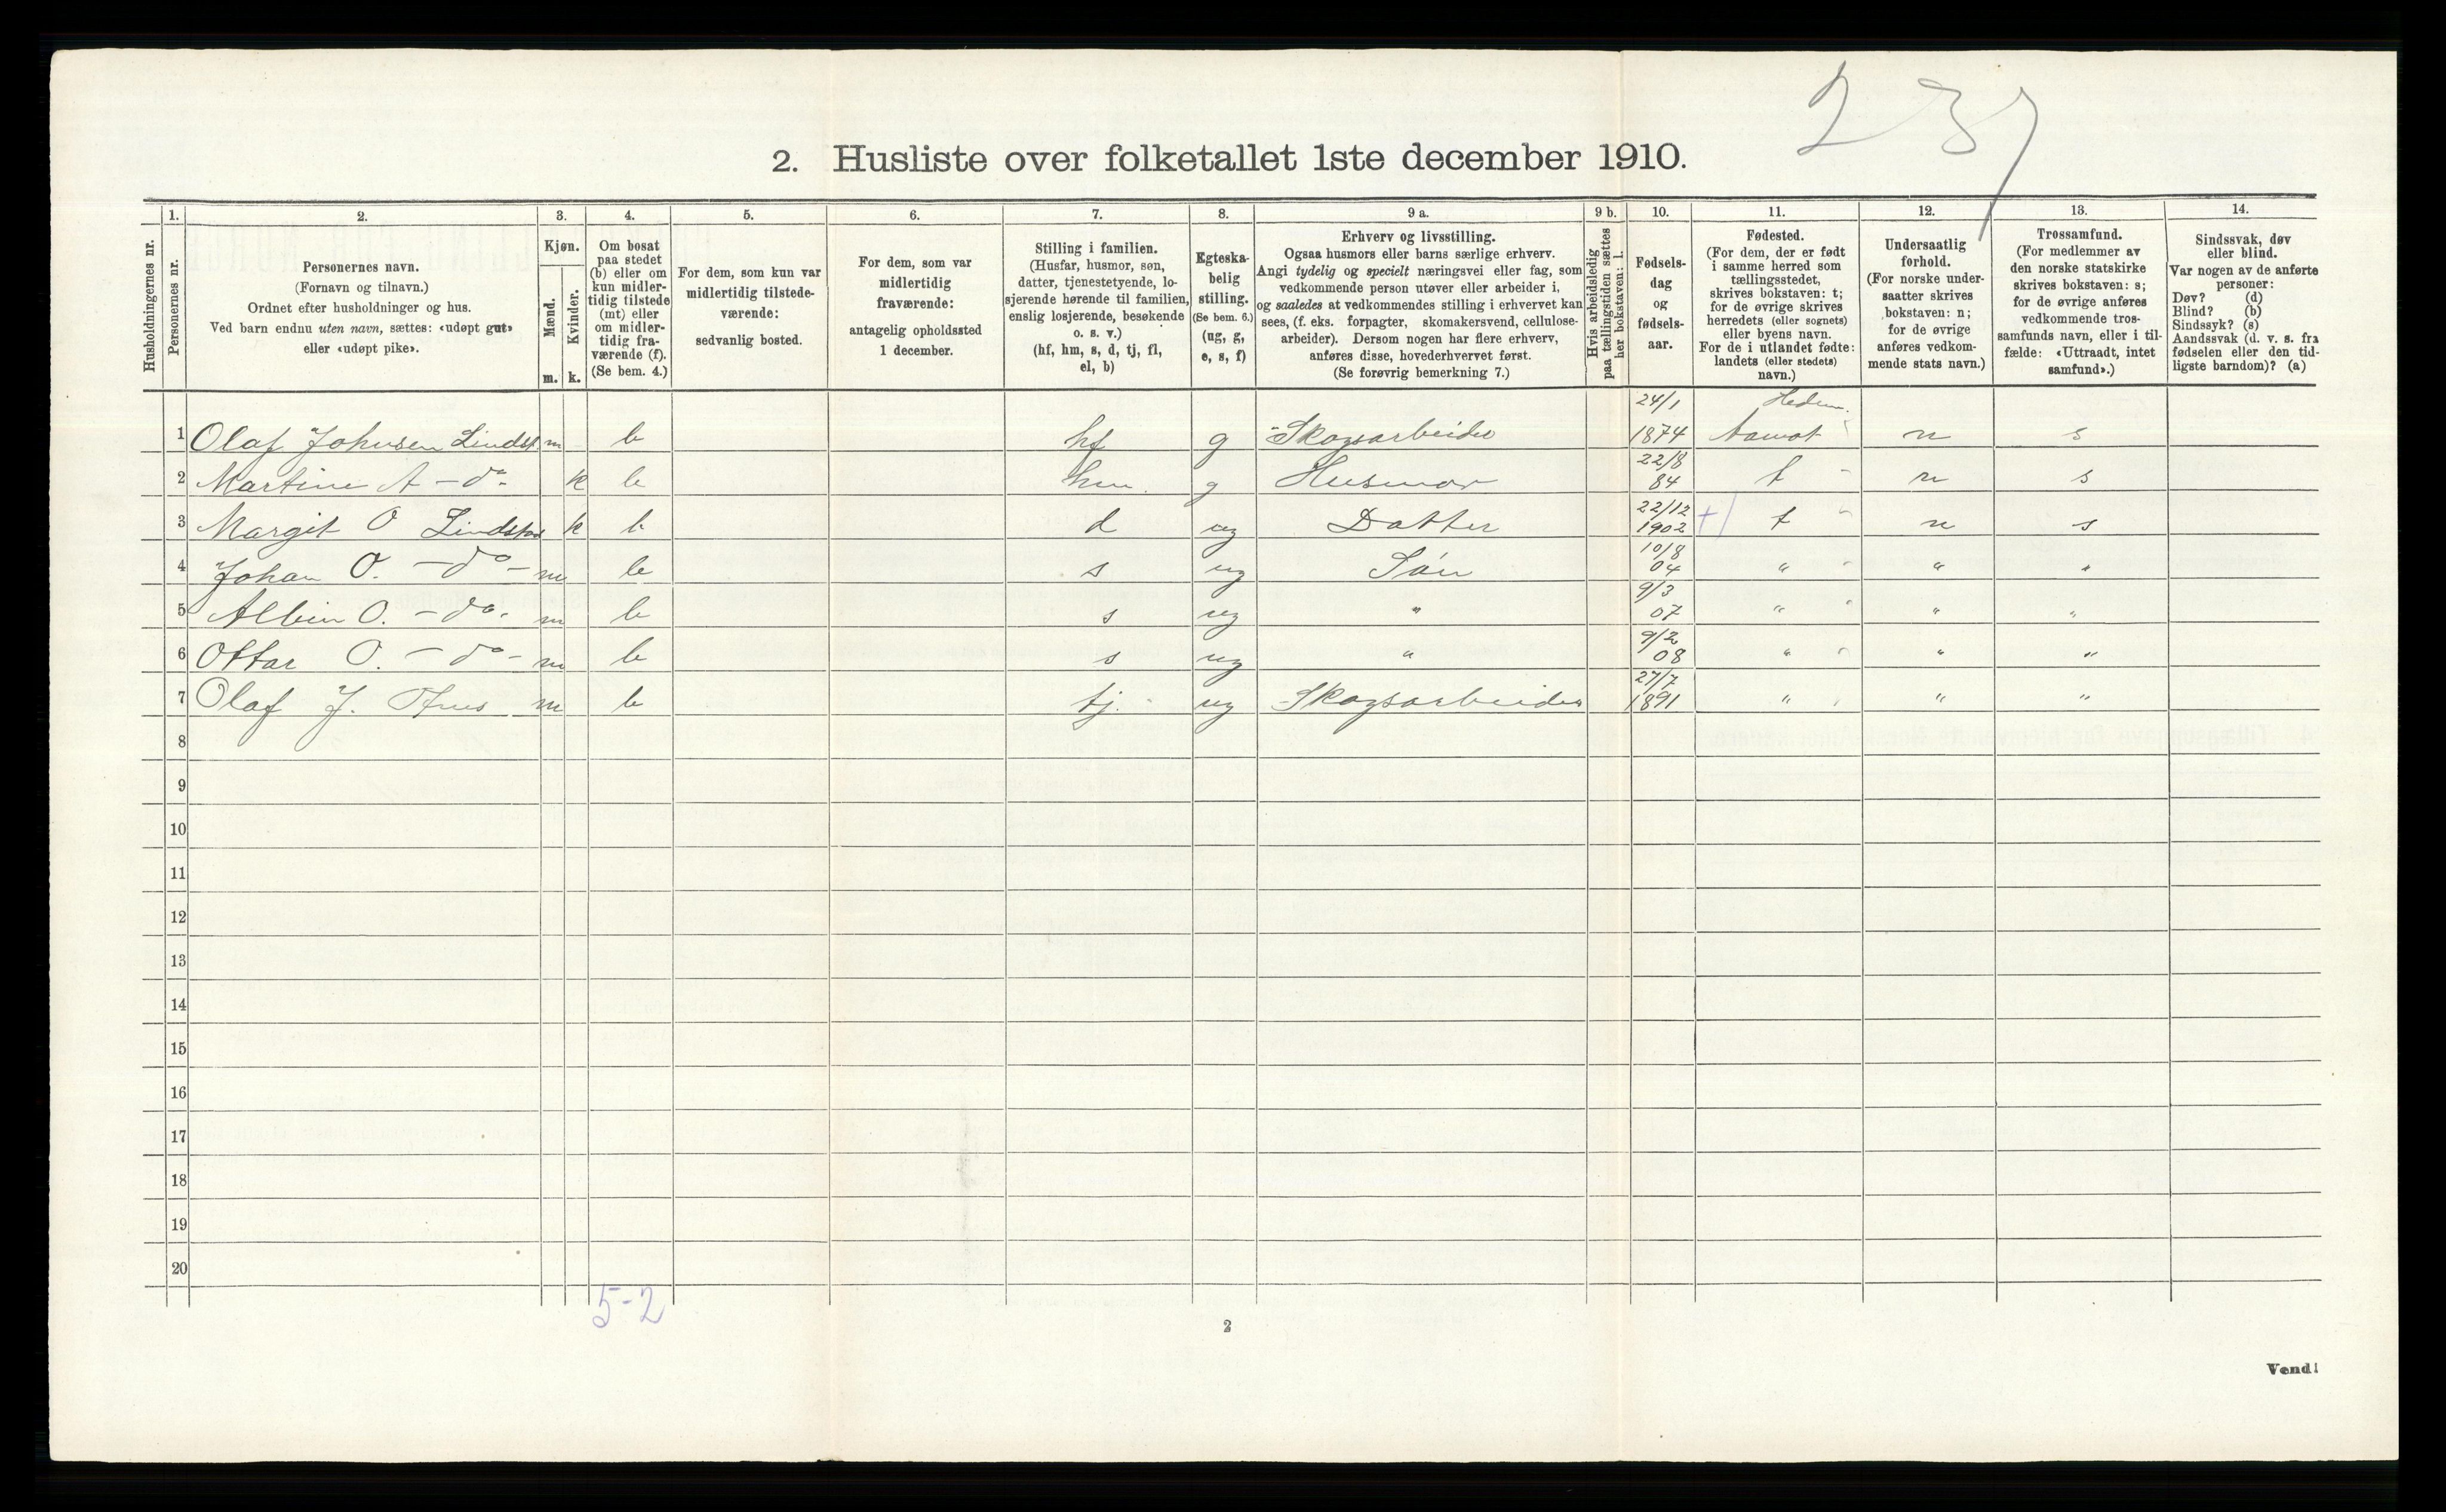 237
2. Husliste over folketallet 1ste december 1910.
Husholdningernes nr.
1.
Personernes nr.
2.
Personernes navn.
(Fornavn og tilnavn.)
Ordnet efter husholdninger og hus.
Ved barn endnu uten navn, sættes: «udøpt gut»
eller «udøpt pike».
3.
Kjøn.
Mænd.
Kvinder.
m. k.
4.
Om bosat
paa stedet
(b) eller om
kun midler-
tidig tilstede
(mt) eller
om midler-
tidig fra-
værende (f).
(Se bem. 4.)
5.
For dem, som kun var
midlertidig tilstede-
værende:
sedvanlig bosted.
6.
For dem, som var
midlertidig
fraværende:
antagelig opholdssted
1 december.
7.
Stilling i familien.
(Husfar, husmor, søn,
datter, tjenestetyende, lo-
sjerende hørende til familien,
enslig losjerende, besøkende
o. s. v.)
(hf, hm, s, d, tj, fl,
el, b)
8.
Egteska-
belig
stilling.
(Se bem. 6.)
(ug, g,
e, s, f)
9 a.
Erhverv og livsstilling.
Ogsaa husmors eller barns særlige erhverv.
Angi tydelig og specielt næringsvei eller fag, som
vedkommende person utøver eller arbeider i,
og saaledes at vedkommendes stilling i erhvervet kan
sees, (f. eks. forpagter, skomakersvend, cellulose-
arbeider). Dersom nogen har flere erhverv,
anføres disse, hovederhvervet først.
(Se forøvrig bemerkning 7.)
9 b.
Hvis arbeidsledig
paa tællingstiden sættes
her bokstaven: l.
10.
Fødsels-
dag
og
fødsels-
aar.
11.
Fødested.
(For dem, der er født
i samme herred som
tællingsstedet,
skrives bokstaven: t;
for de øvrige skrives
herredets (eller sognets)
eller byens navn.
For de i utlandet fødte:
landets (eller stedets)
navn.)
12.
Undersaatlig
forhold.
(For norske under-
saatter skrives
bokstaven: n;
for de øvrige
anføres vedkom-
mende stats navn.)
13.
Trossamfund.
(For medlemmer av
den norske statskirke
skrives bokstaven: s;
for de øvrige anføres
vedkommende tros-
samfunds navn, eller i til-
fælde: «Uttraadt, intet
samfund».)
14.
Sindssvak, døv
eller blind.
Var nogen av de anførte
personer:
Døv? (d)
Blind? (b)
Sindssyk? (s)
Aandssvak (d. v. s. fra
fødselen eller den tid-
ligste barndom)? (a)
24/1 Hedm.
1 Olaf Johnsen Lindst. m b hf g Skogsarbeider 1874 Aamot n s
22/8
2 Martine A - do - k b hm. g Husmor 84 t n s
22/12
3 Margit O Lindstad k b d ug Datter 1902 t n s
10/8
4 Johan O. - do - m b s ug Søn 04 " " "
9/3
5 Albin O. - do. m b s ug " 07 " " "
9/2
6 Ottar O. - do - m b s ug " 08 " " "
27/7
7 Olaf J. m b tj. ug Skogsarbeider 1891 " " "
8
9
10
11
12
13
14
15
16
17
18
19
20
5-2
2
Vend!